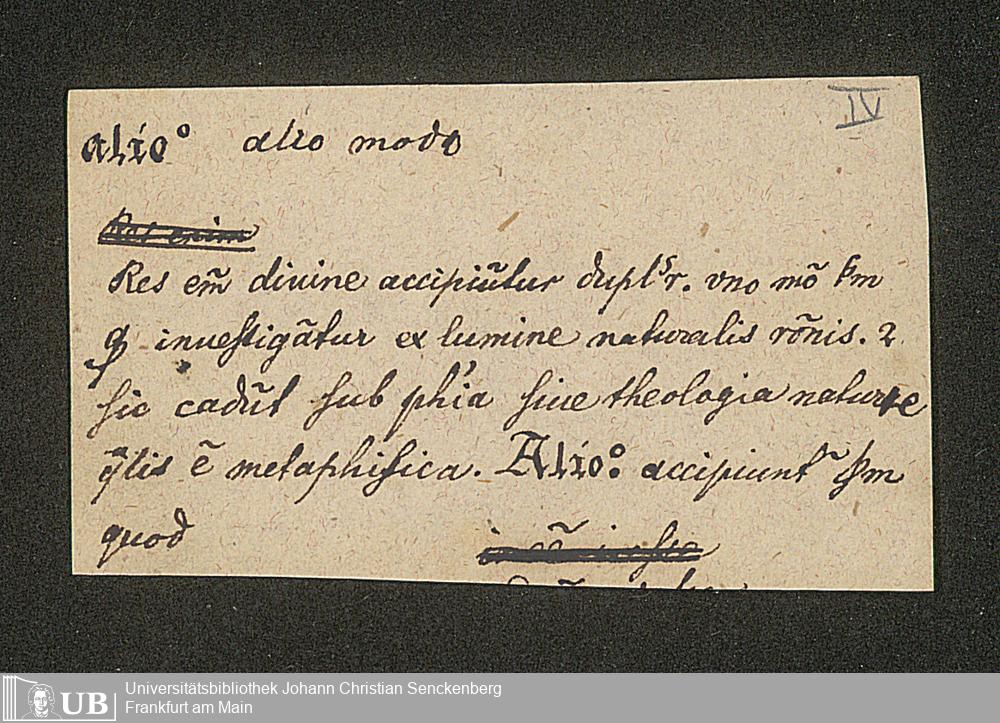 IV
alio° alio modo
Res enim
Res em̃ diuine accipiũtur dupl͛r. vno mõ ẜm
ꝙ inuestigãtur ex lumine naturalis rõnis. ⁊
sic cadũt sub ph'ia siue theologia nature
q̃lis ẽ metaphisica. Alio° accipiunt᷑ ẜm
quod
UB Universitätsbibliothek Johann Christian Senckenberg
Frankfurt am Main